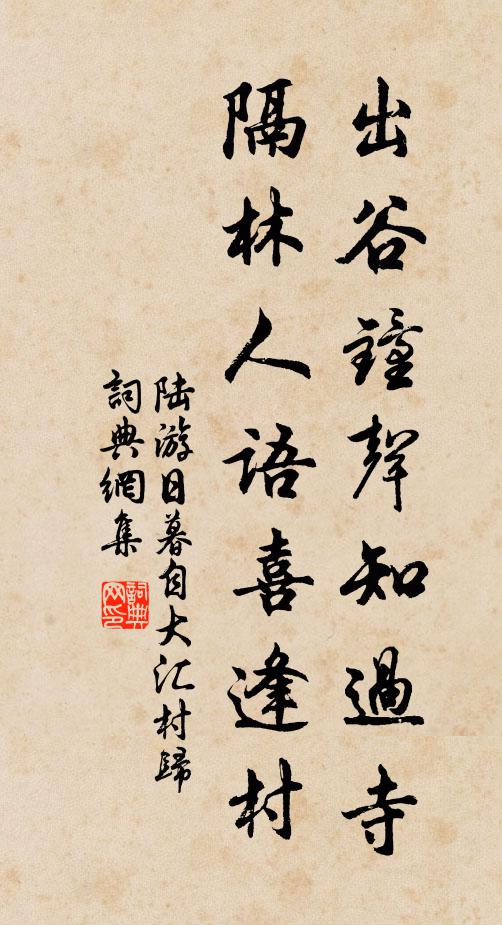 出谷鐘聲知過寺
隔林人語喜逢村
陆游日暮自大汇村歸
詞典網集
詞典网印